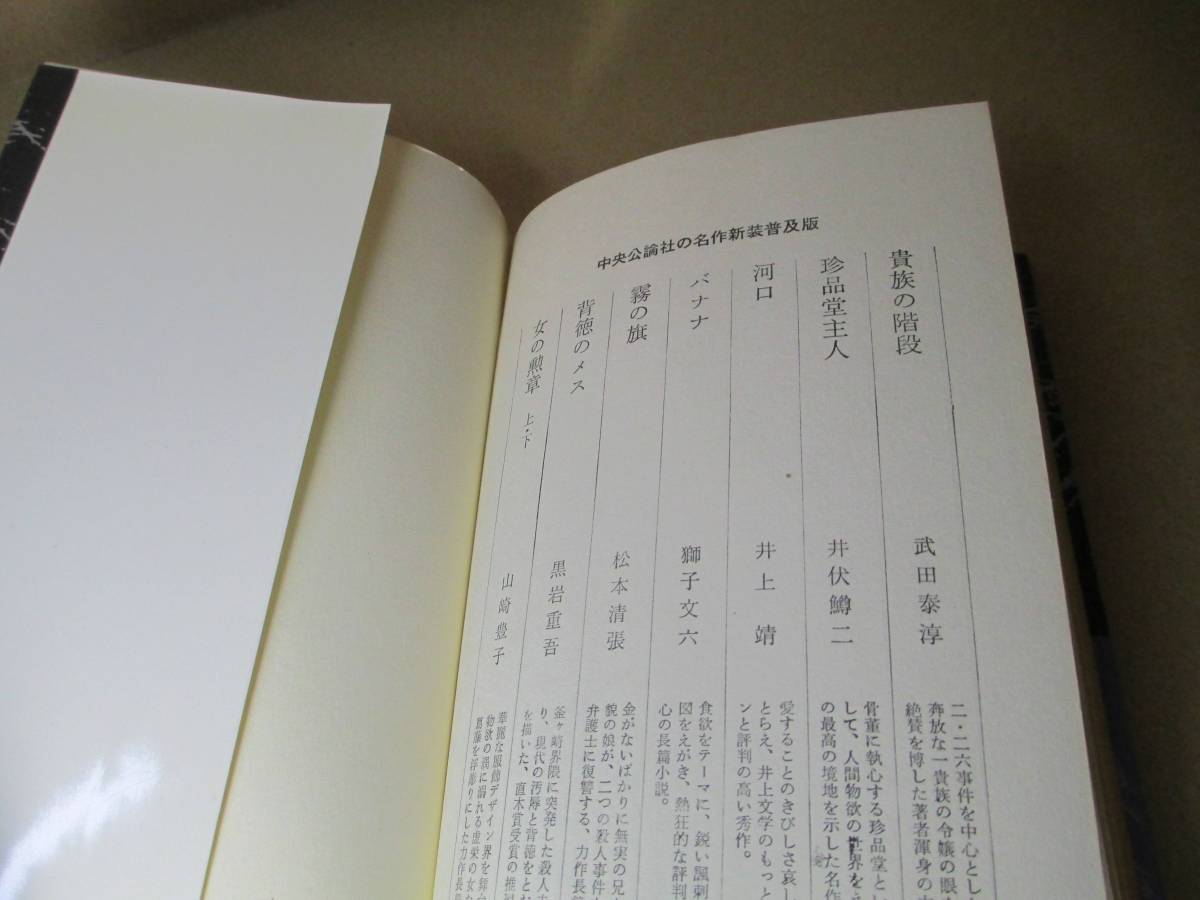 中央公論社の名作新装普及版
貴族の階段
武田泰淳
二・二六事件を中心とし
奔放な一貴族の令嬢の眼
絶賛を博した著者渾身の
珍品堂主人
井伏鱒二
骨董に執心する珍品堂と
して、人間物欲の世界を
の最高の境地を示した名作
河口
井上靖
愛することのきびしさ哀し
とらえ、井上文学のもっと
ンと評判の高い秀作。
バナナ
獅子文六
食欲をテーマに、鋭い諷刺
図をえがき、熱狂的な評判
心の長篇小説。
霧の旗
松本清張
金がないばかりに無実の兄
貌の娘が、二つの殺人事件
弁護士に復讐する、力作長
背徳のメス
黒岩重吾
釜ヶ崎界隈に突発した殺人
り、現代の汚辱と背徳をとむ
を描いた、直木賞受賞の推
女の勲章 上・下
山崎豊子
華麗な服飾デザイン界を舞
物欲の渦に溺れる虚栄の女
葛藤を浮彫りにした力作長